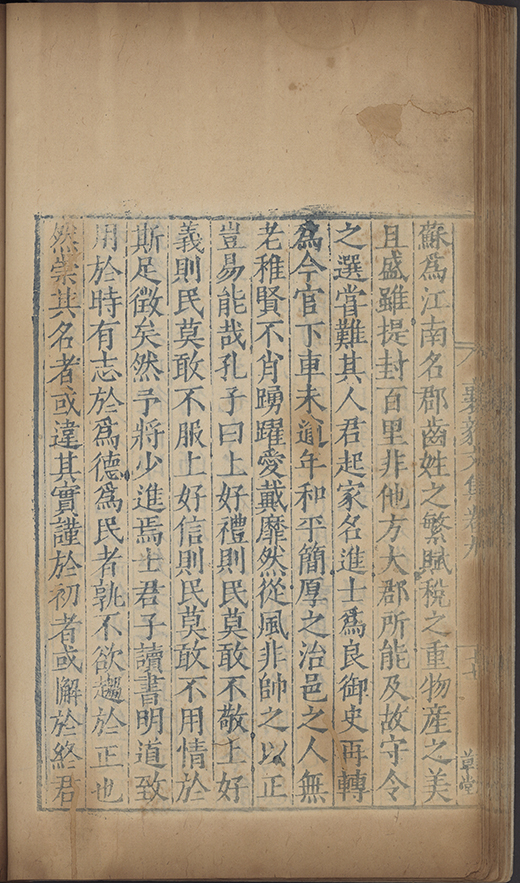 蘇爲江南名郡齒姓之繁賦稅之重物產之美
且盛雖提封百里非他方大郡所能及故守令
之選嘗難其人君起家名進士爲良御史再轉
爲今官下車未逾年和平簡厚之治邑之人無
老稚賢不肖踴躍愛戴靡然從風非帥之以正
豈易能哉孔子曰上好禮則民莫敢不敬上好
義則民莫敢不服上好信則民莫敢不用情於
斯足徵矣然予將少進焉士君子讀書明道致
用於時有志於爲德爲民者孰不欲趨於正也
然崇其名者或違其實謹於初者或懈於終君
草堂